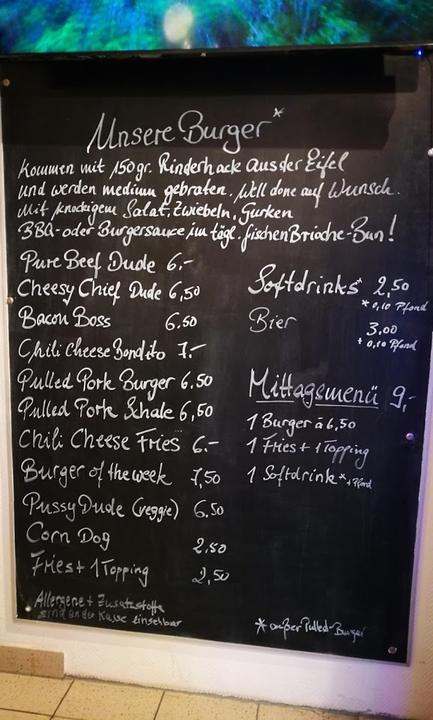 Unsere Burger*
Kommen mit 150gr. Rinderhack aus der Eifel
und werden medium gebraten. Well done auf Wunsch.
Mit knackigem Salat, Zwiebeln, Gurken
BBQ- oder Burgersauce im tägl. frischen Brioche-Bun!
Pure Beef Dude 6.-
Cheesy Chief Dude 6,50
Bacon Boss 6.50
Chili Cheese Bandito 7.-
Pulled Pork Burger 6.50
Pulled Pork Schale 6,50
Chili Cheese Fries 6.-
Burger of the week 7,50
Pussy Dude (veggie) 6,50
Corn Dog 2,50
Fries + 1 Topping 2,50
Allergene + Zusatzstoffe
sind an der Kasse einsehbar
Softdrinks* 2,50
*0,10 Pfand
Bier 3,00
+ 0,10 Pfand
Mittagsmenü 9,-
1 Burger á 6,50
1 Fries + 1 Topping
1 Softdrink* + Pfand
* außer Pulled-Burger